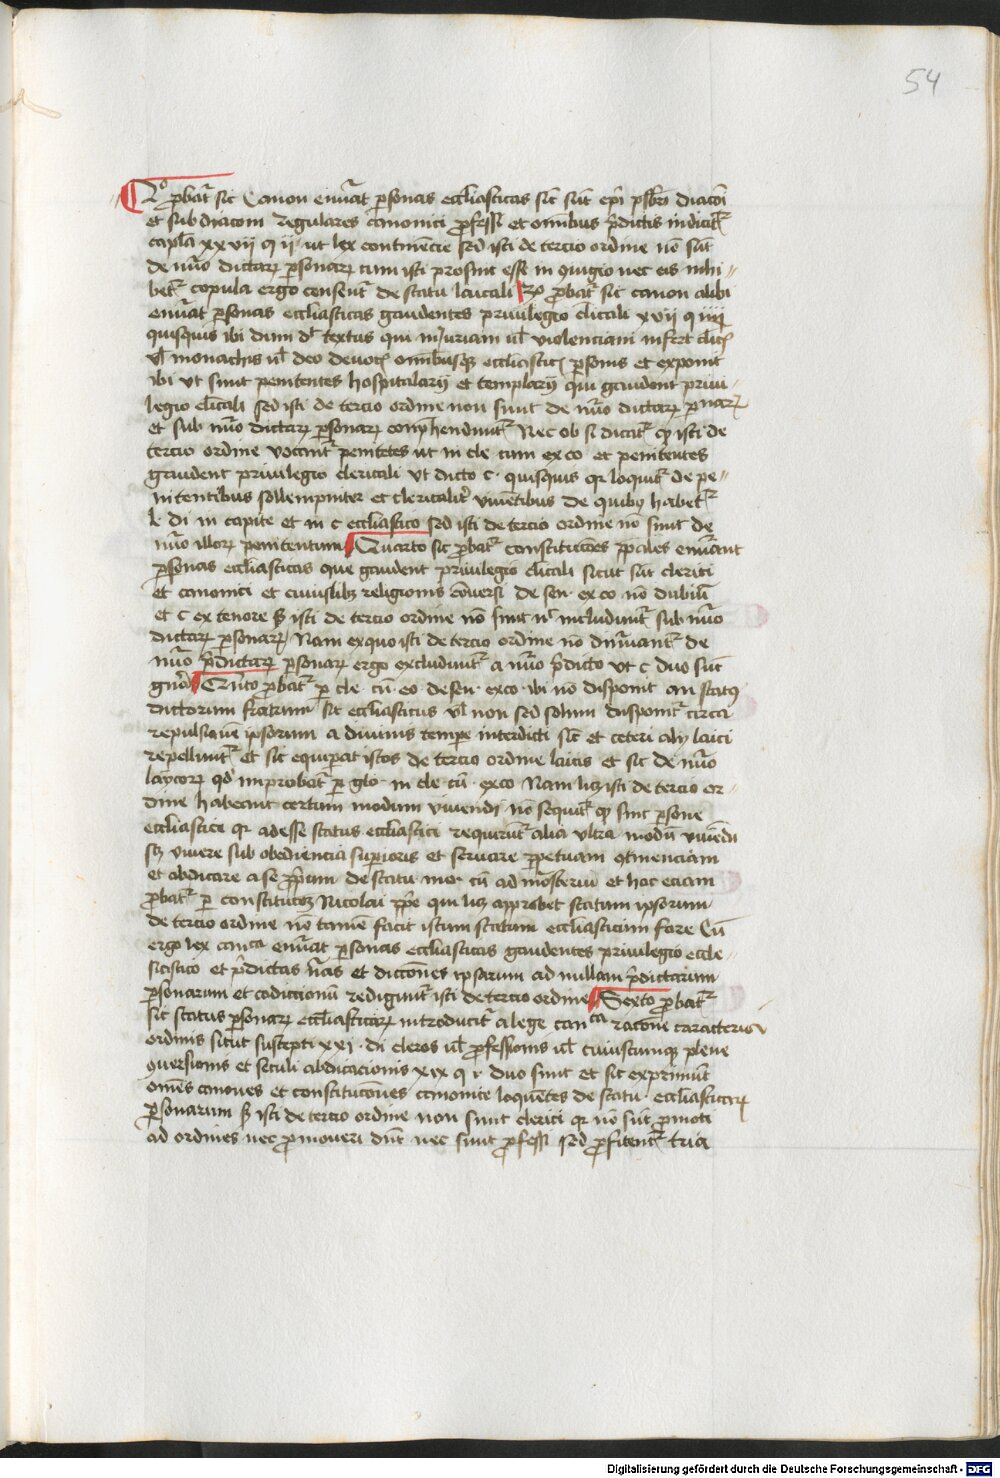 54
2o probatr sic Canon enumat personas ecclesiasticas sic sunt epi presbri diaconi
et subdiaconi regulares canonici professi et omnibus predictis indicitr
capla xxvii q ii ut lex continencie sed isti de tercio ordine non sunt
de numero dictarum personarum cum isti prosint esse in coniugio nec eis inhi-
betr copula ergo censentr de statu laicali 3o probatr sic canon alibi
enumat personas ecclesiasticas gaudentes privilegio clericali xvii q iiii
quisquis ibi dum dr textus qui iniuriam vel violenciam infert
vel monachis vel deo devotis omnibusque ecclesiasticis personis et exponit
ibi ut sunt penitentes hospitalarij et templarij qui gaudent privi-
legio clericali sed isti de tercio ordine non sunt de numero dictarum
et sub numero dictarum personarum comprehendnntr Nec obsi dicatr quod isti de
tercio ordine vocantr penitentes ut in cle cum ex co et penitentes
gaudent privilegio clericali ut dicto c quisquis qr loquitr de pe-
nitentibus sollempniter et clericaliter viventibus de quibus habetr
l di in capite et in c ecclesiastico sed isti de tercio ordine non sunt de
numero illorum penitentum Quarto sic probatr constituciones papales enumerant
personas ecclesiasticas que gaudent privilegio clericali sicut sunt clerici
et canonici et cuiuslibet religionis conversi de sen ex co non dubium
et c ex tenore sed isti de tercio ordine non sunt nec includuntr sub numero
dictarum personarum Nam ex quo isti de tercio ordine non de
numero predictarum personarum ergo excluduntr a numero predicto ut c duo sunt
Quinto probatr per cle cum eo de sen exco ibi non disponit an status
dictorum fratrum sit ecclesiasticus vel non sed solum disponitr circa
repulsionem ipsorum a divinis tempore interdicti sic et ceteri alij laici
repelluntr et sic equiperat istos de tercio ordine laicis et sic de numero
laycorum quod improbatr per glo in cle cum exco Nam licet isti de tercio or-
dine habeant certum modum vivendi non sequitr quod sint persone
ecclesiastici qr ad esse status ecclesiastici requiruntr alia ultra modum vivendi
scilicet vivere sub obediencia superioris et servare perpetuam continenciam
et abdicare a se proprium de statu mo cum ad monasterium et hoc eciam
probatr per constitucionem Nicolai pape qui licet approbet statum ipsorum
de tercio ordine non tamen facit istum statum ecclesiasticum fore Cum
ergo lex canonica enumat personas ecclesiasticas gaudentes privilegio eccle-
siastico et predictas et dictiones ipsarum ad nullam predictarum
personarum et condictionum rediguntr isti de tercio ordine Sexto probatr
sic status personarum ecclesiasticarum introducitr a lege canonica racione caracteris
ordinis sicut suscepti xxi di cleros vel professionis vel cuiuscumque plene
conversionis et seculi abdicacionis xix q i duo sunt et sic exprimunt
omnes canones et constituciones canonice loquentes de statu ecclesiasticarum
personarum sed isti de tercio ordine non sunt clerici qr non sunt promoti
ad ordines nec promoveri debent nec sunt professi sed profitentr tria
Digitalisierung gefördert durch die Deutsche Forschungsgemeinschaft - DFG